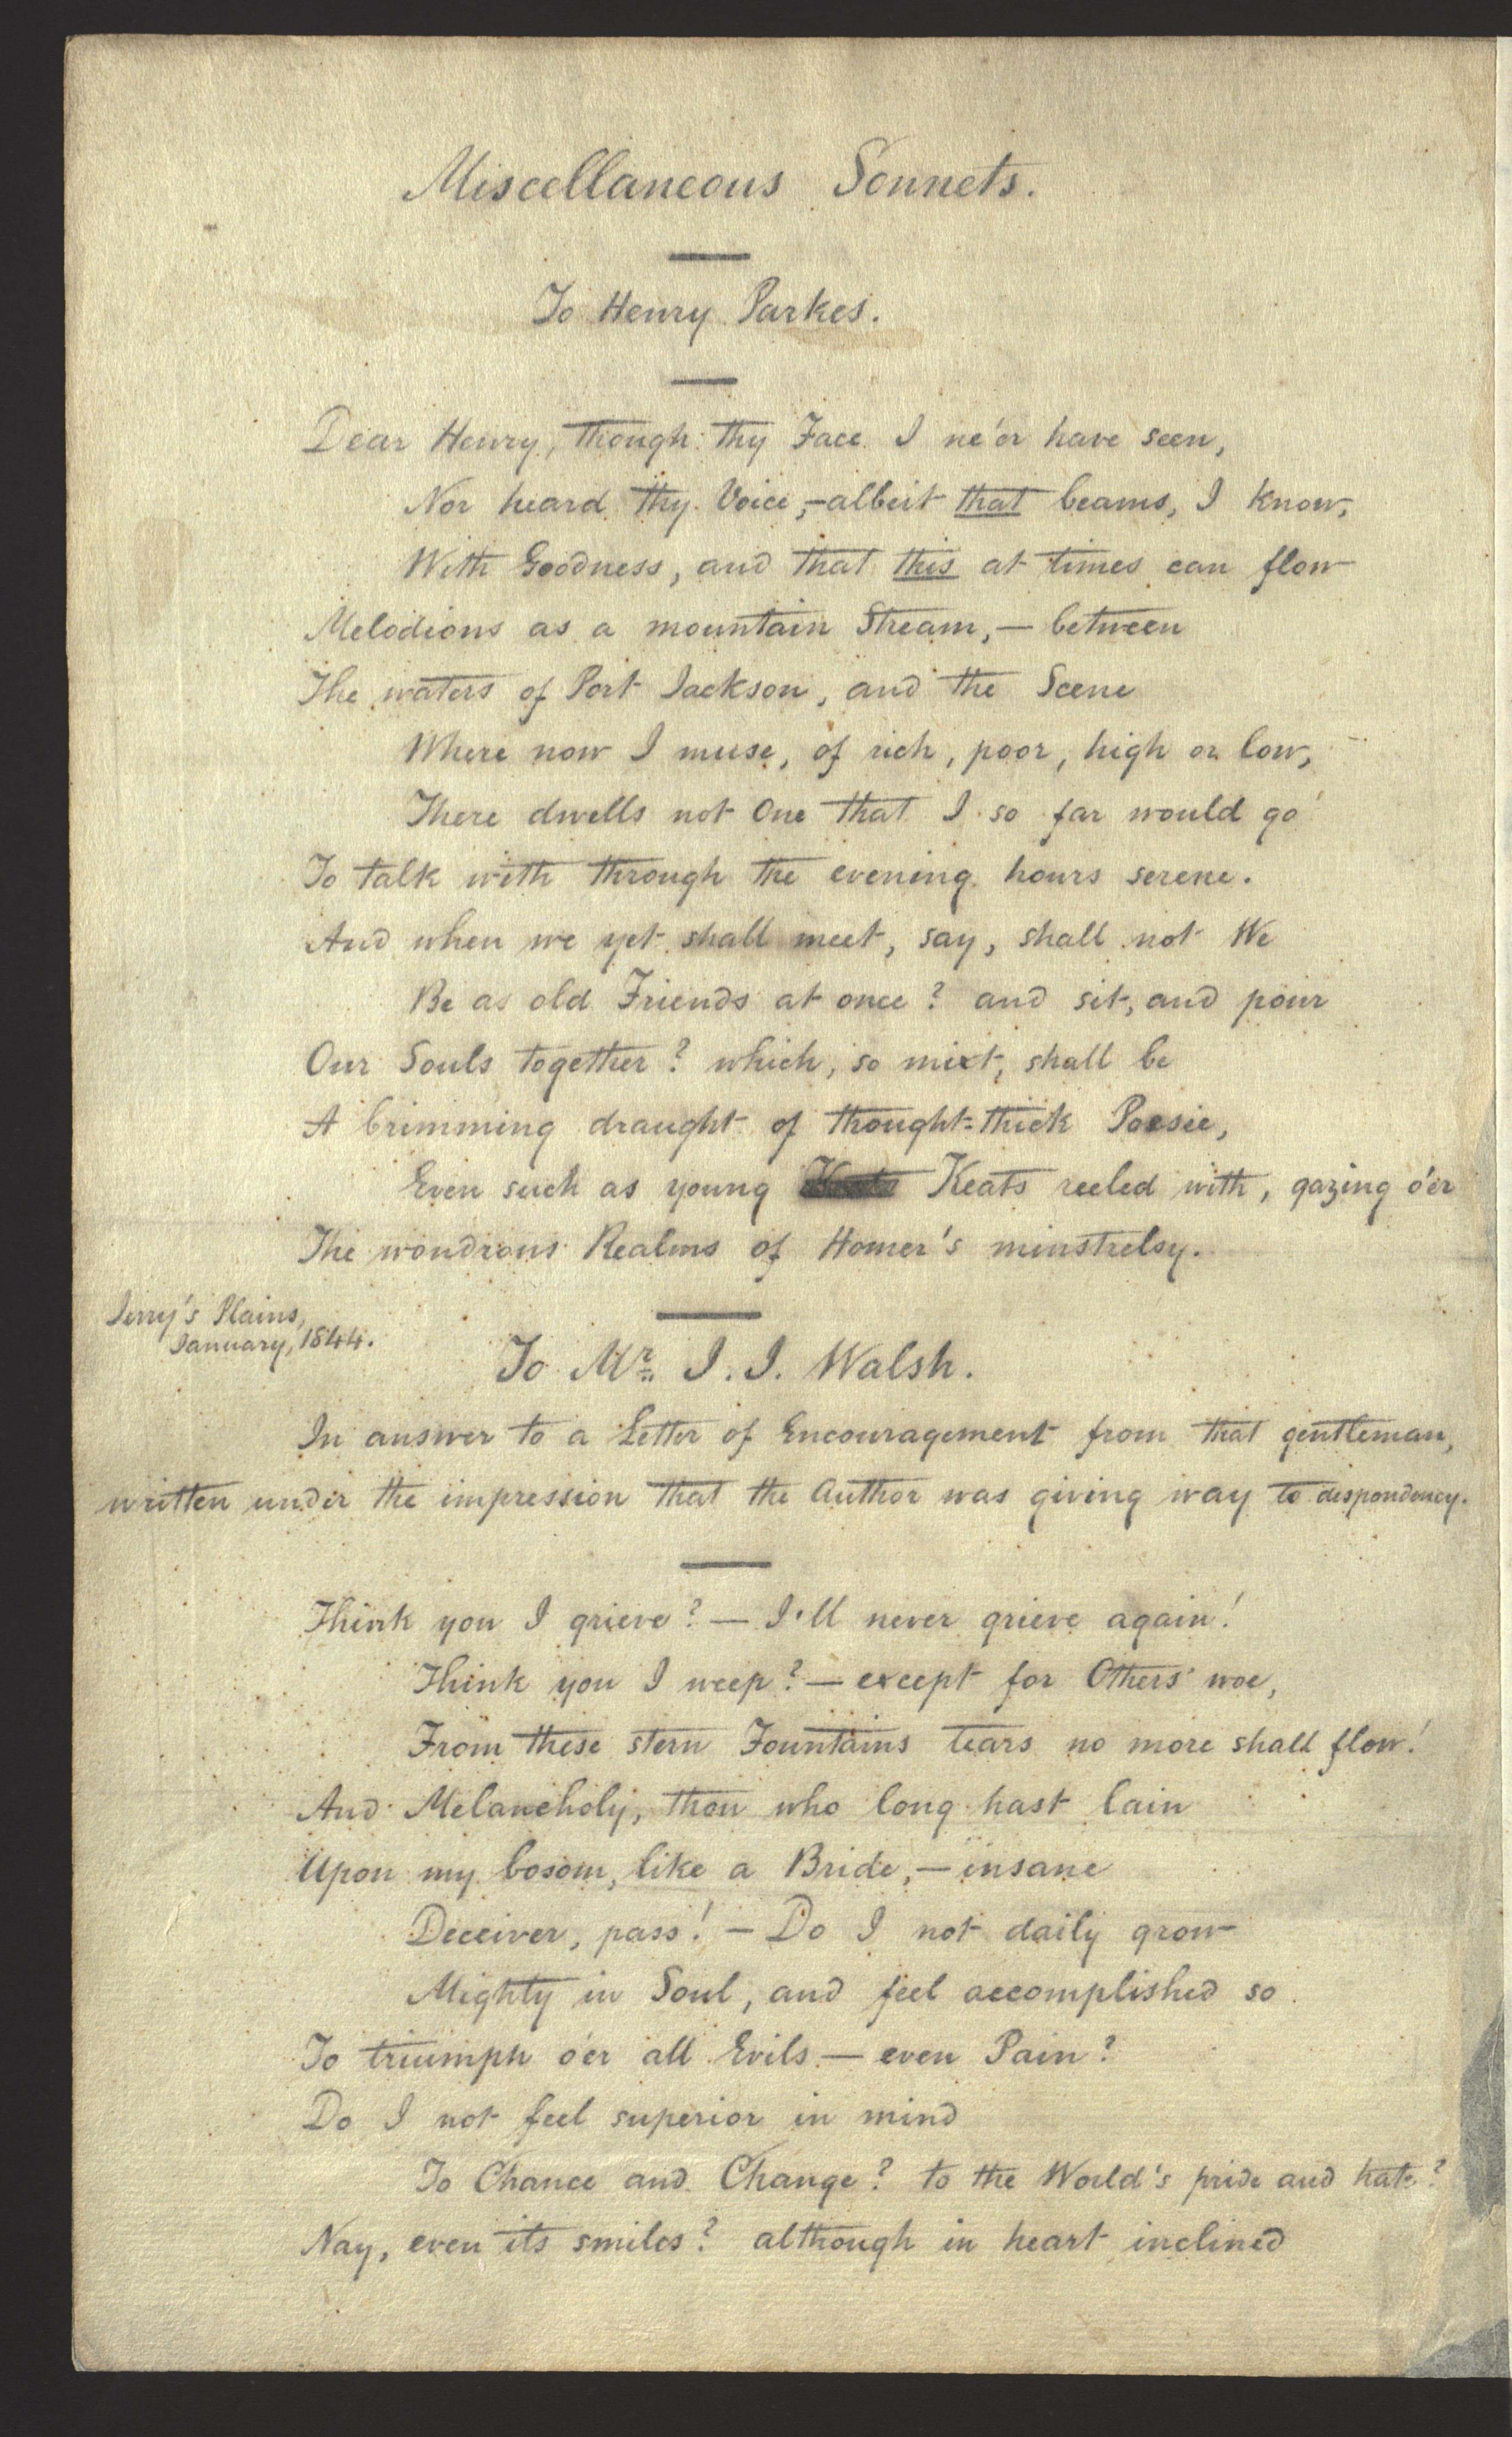 Miscellaneous Sonnets.
To Henry Parkes.
Dear Henry, though thy Face I ne'er have seen,
Nor heard thy Voice,—albeit that beams, I know,
With Goodness, and that this at times can flow
Melodious as a mountain Stream,— between
The waters of Port Jackson, and the Scene
Where now I muse, of rich, poor, high or low,
There dwells not One that I so far would go
To talk with through the evening hours serene.
And when we yet shall meet, say, shall not We
Be as old Friends at once? and sit, and pour
Our Souls together? which, so mixt, shall be
A brimming draught of thought-thick Poesie,
Even such as young Keats reeled with, gazing o'er
The wondrous Realms of Homer's minstrelsy.
Jerry's Plains,
January, 1844.
To Mr. J. J. Walsh.
In answer to a Letter of Encouragement from that gentleman,
written under the impression that the Author was giving way to despondency.
Think you I grieve?— I'll never grieve again!
Think you I weep?— except for Others' woe,
From these stern Fountains tears no more shall flow!
And Melancholy, thou who long hast lain
Upon my bosom, like a Bride,— insane
Deceiver, pass!— Do I not daily grow
Mighty in Soul, and feel accomplished so
To triumph o'er all Evils— even Pain?
Do I not feel superior in mind
To Chance and Change? to the World's pride and hate?
Nay, even its smiles? although in heart inclined